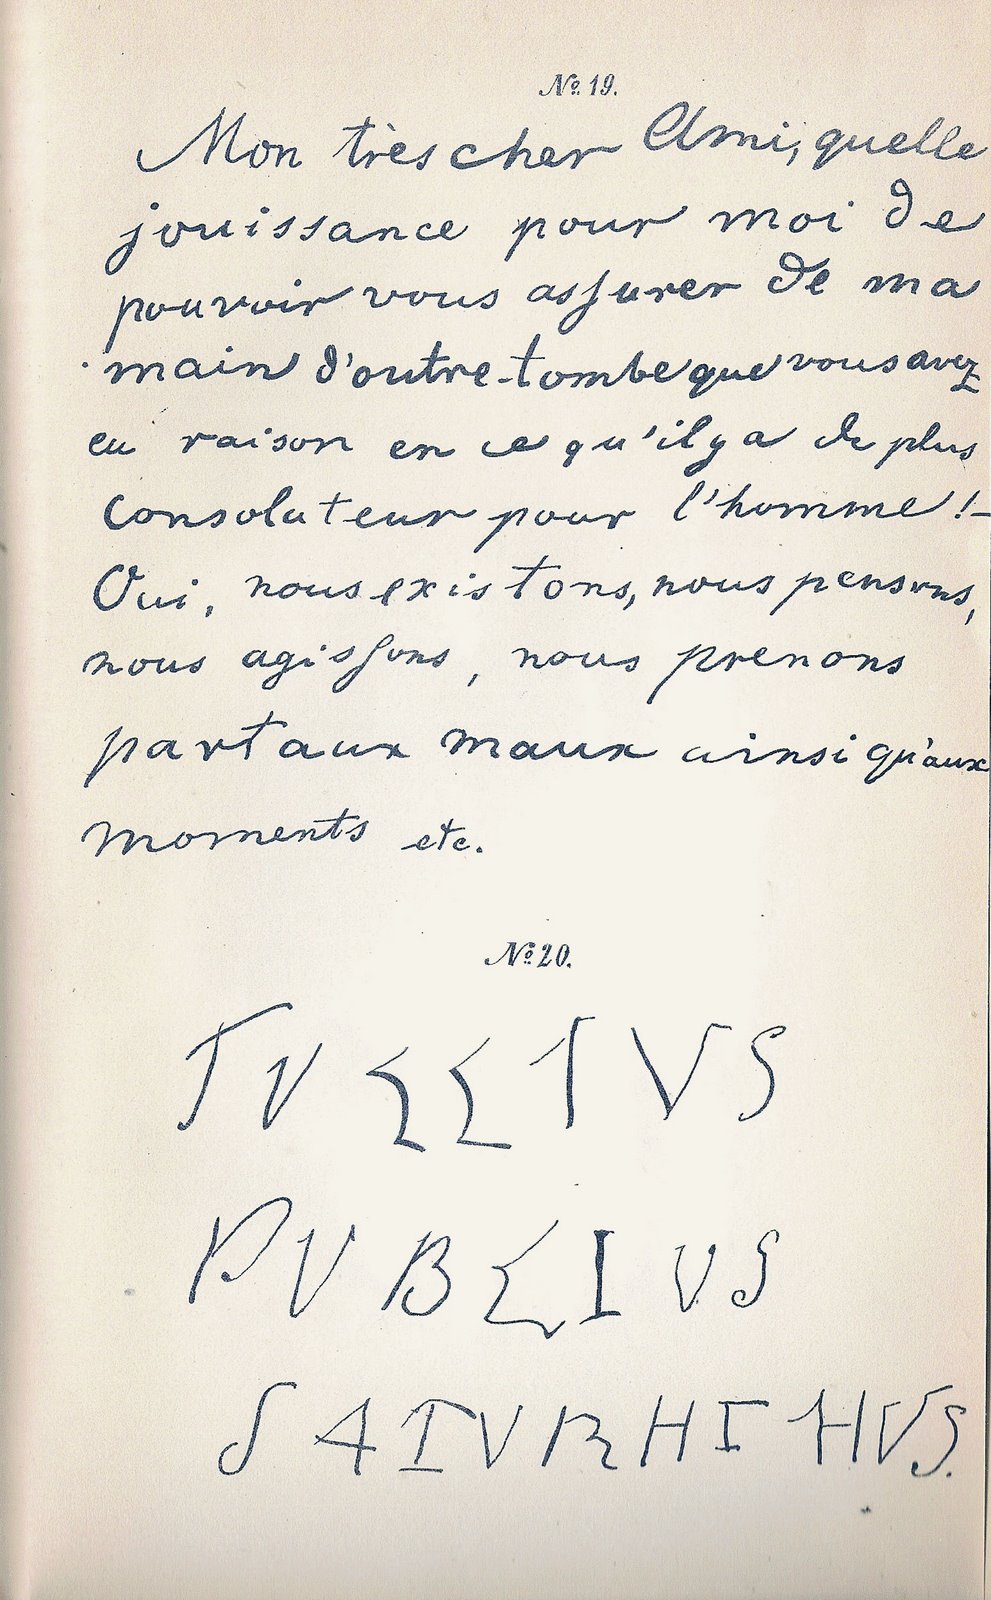 № 19.
Mon très cher Ami, quelle
jouissance pour moi de
pouvoir vous assurer de ma
main d'outre-tombe que vous avez
eu raison en ce qu'il y a de plus
consolateur pour l'homme! –
Oui, nous existons, nous pensons,
nous agissons, nous prenons
part aux maux ainsi qu'aux
moments etc.
№ 20.
TVLLIVS
PVBLIVS
SATVRHIHVS.